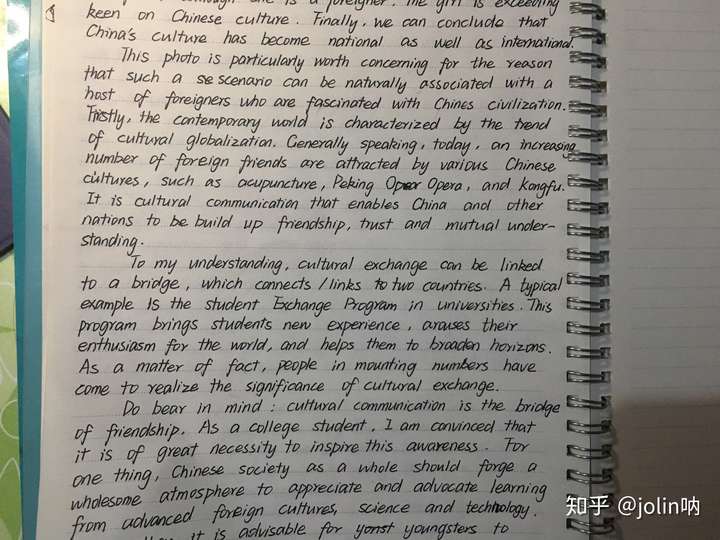 although one is a foreigner. The girl is exceeding
keen on Chinese culture. Finally, we can conclude that
China's culture has become national as well as international.
This photo is particularly worth concerning for the reason
that such a se scenario can be naturally associated with a
host of foreigners who are fascinated with Chines civilization.
Firstly, the contemporary world is characterized by the trend
of cultural globalization. Generally speaking, today, an increasing
number of foreign friends are attracted by various Chinese
cultures, such as acupuncture, Peking Oper Opera, and Kongfu.
It is cultural communication that enables China and other
nations to be build up friendship, trust and mutual under-
standing.
To my understanding, cultural exchange can be linked
to a bridge, which connects / links to two countries. A typical
example is the student Exchange Program in universities. This
program brings students new experience, arouses their
enthusiasm for the world, and helps them to broaden horizons.
As a matter of fact, people in mounting numbers have
come to realize the significance of cultural exchange.
Do bear in mind : cultural communication is the bridge
of friendship. As a college student, I am convinced that
it is of great necessity to inspire this awareness. For
one thing, Chinese society as a whole should forge a
wholesome atmosphere to appreciate and advocate learning
from advanced foreign cultures, science and technology.
it is advisable for yonst youngsters to
知乎 @jolin呐